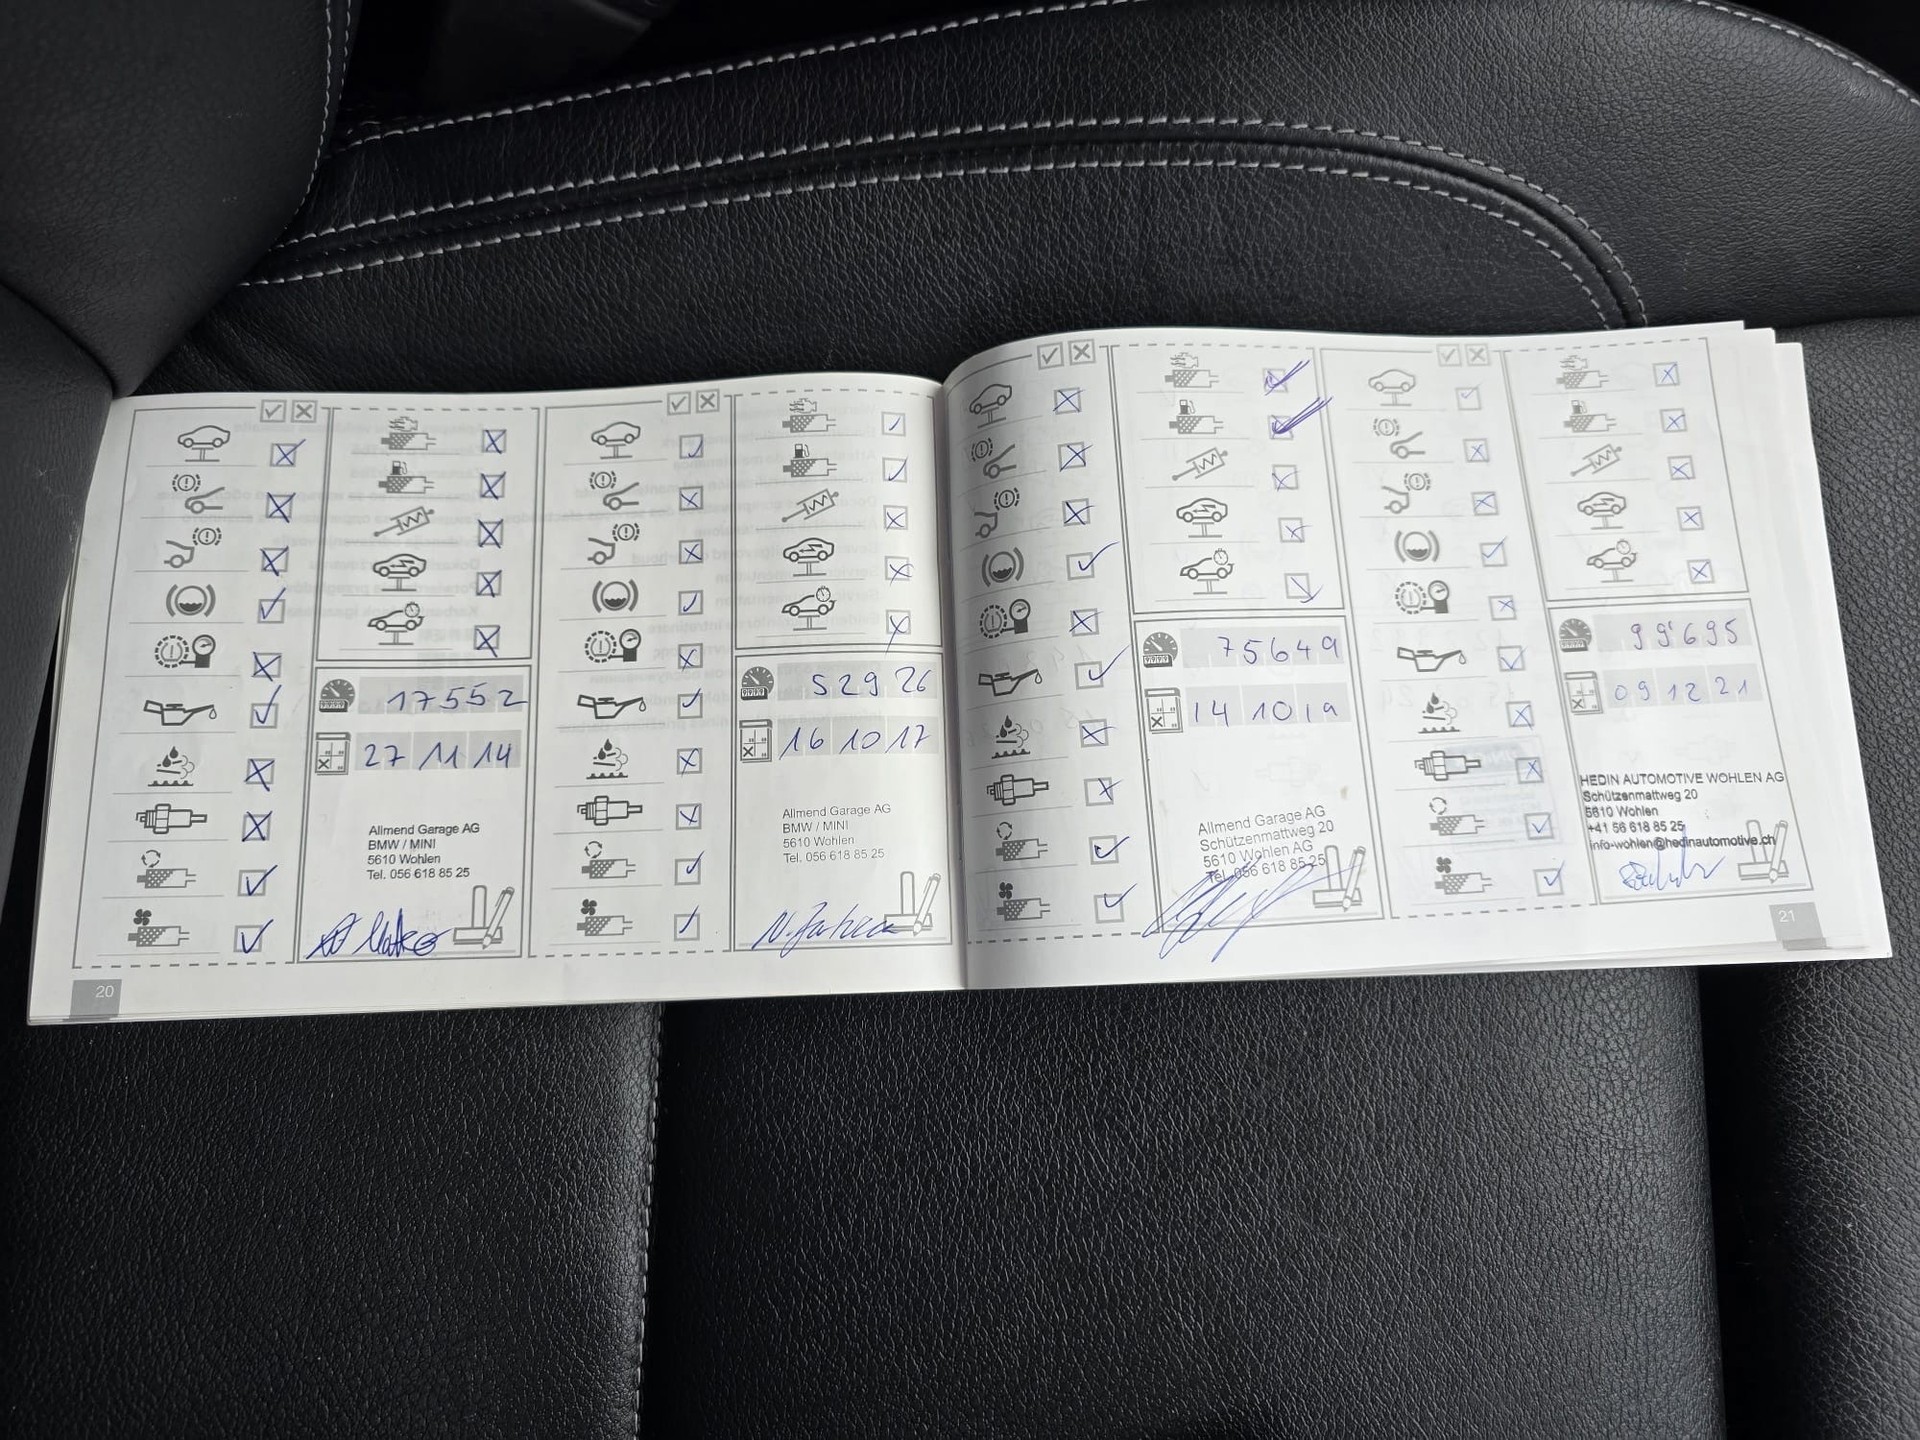 17552
27 11 14
Allmend Garage AG
BMW / MINI
5610 Wohlen
Tel. 056 618 85 25
20
52926
16 10 17
Allmend Garage AG
BMW / MINI
5610 Wohlen
Tel. 056 618 85 25
75649
14 10 19
Allmend Garage AG
Schützenmattweg 20
5610 Wohlen AG
Tel. 056 618 85 25
99'695
09 12 21
HEDIN AUTOMOTIVE WOHLEN AG
Schützenmattweg 20
5610 Wohlen
+41 56 618 85 25
info-wohlen@hedinautomotive.ch
21